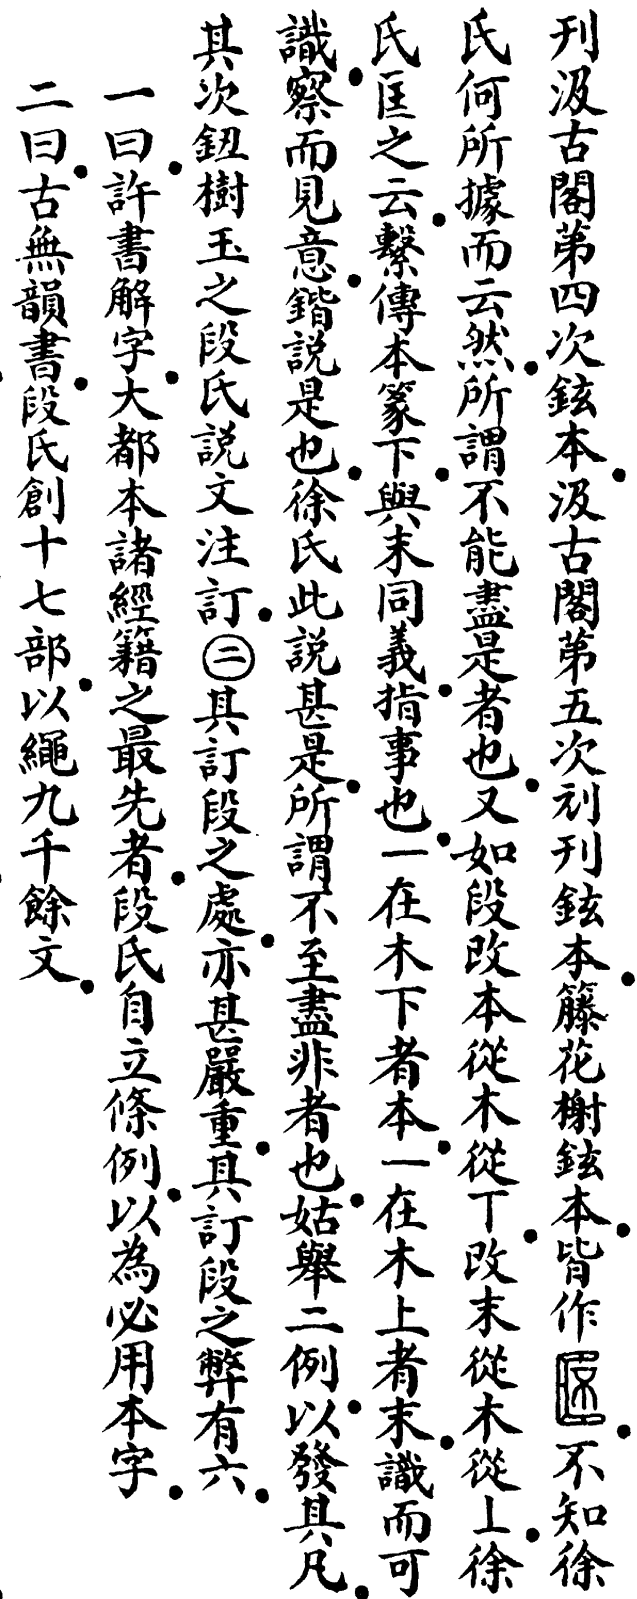 刊汲古閣第四次鉉本汲古閣第五次刓刊鉉本籐花榭鉉本皆作不知徐
氏何所據而云然所謂不能盡是者也又如段改本從木從丅改末從木從丄徐
氏匡之云繫傳本篆下與末同義指事也一在木下者本一在木上者末識而可
識察而見意鍇說是也徐氏此說甚是所謂不至盡非者也姑舉二例以發其凡
其次鈕樹玉之段氏說文注訂㊁其訂段之處亦甚嚴重其訂段之弊有六
一曰許書解字大都本諸經籍之最先者段氏自立條例以為必用本字
二曰古無韻書段氏創十七部以繩九千餘文